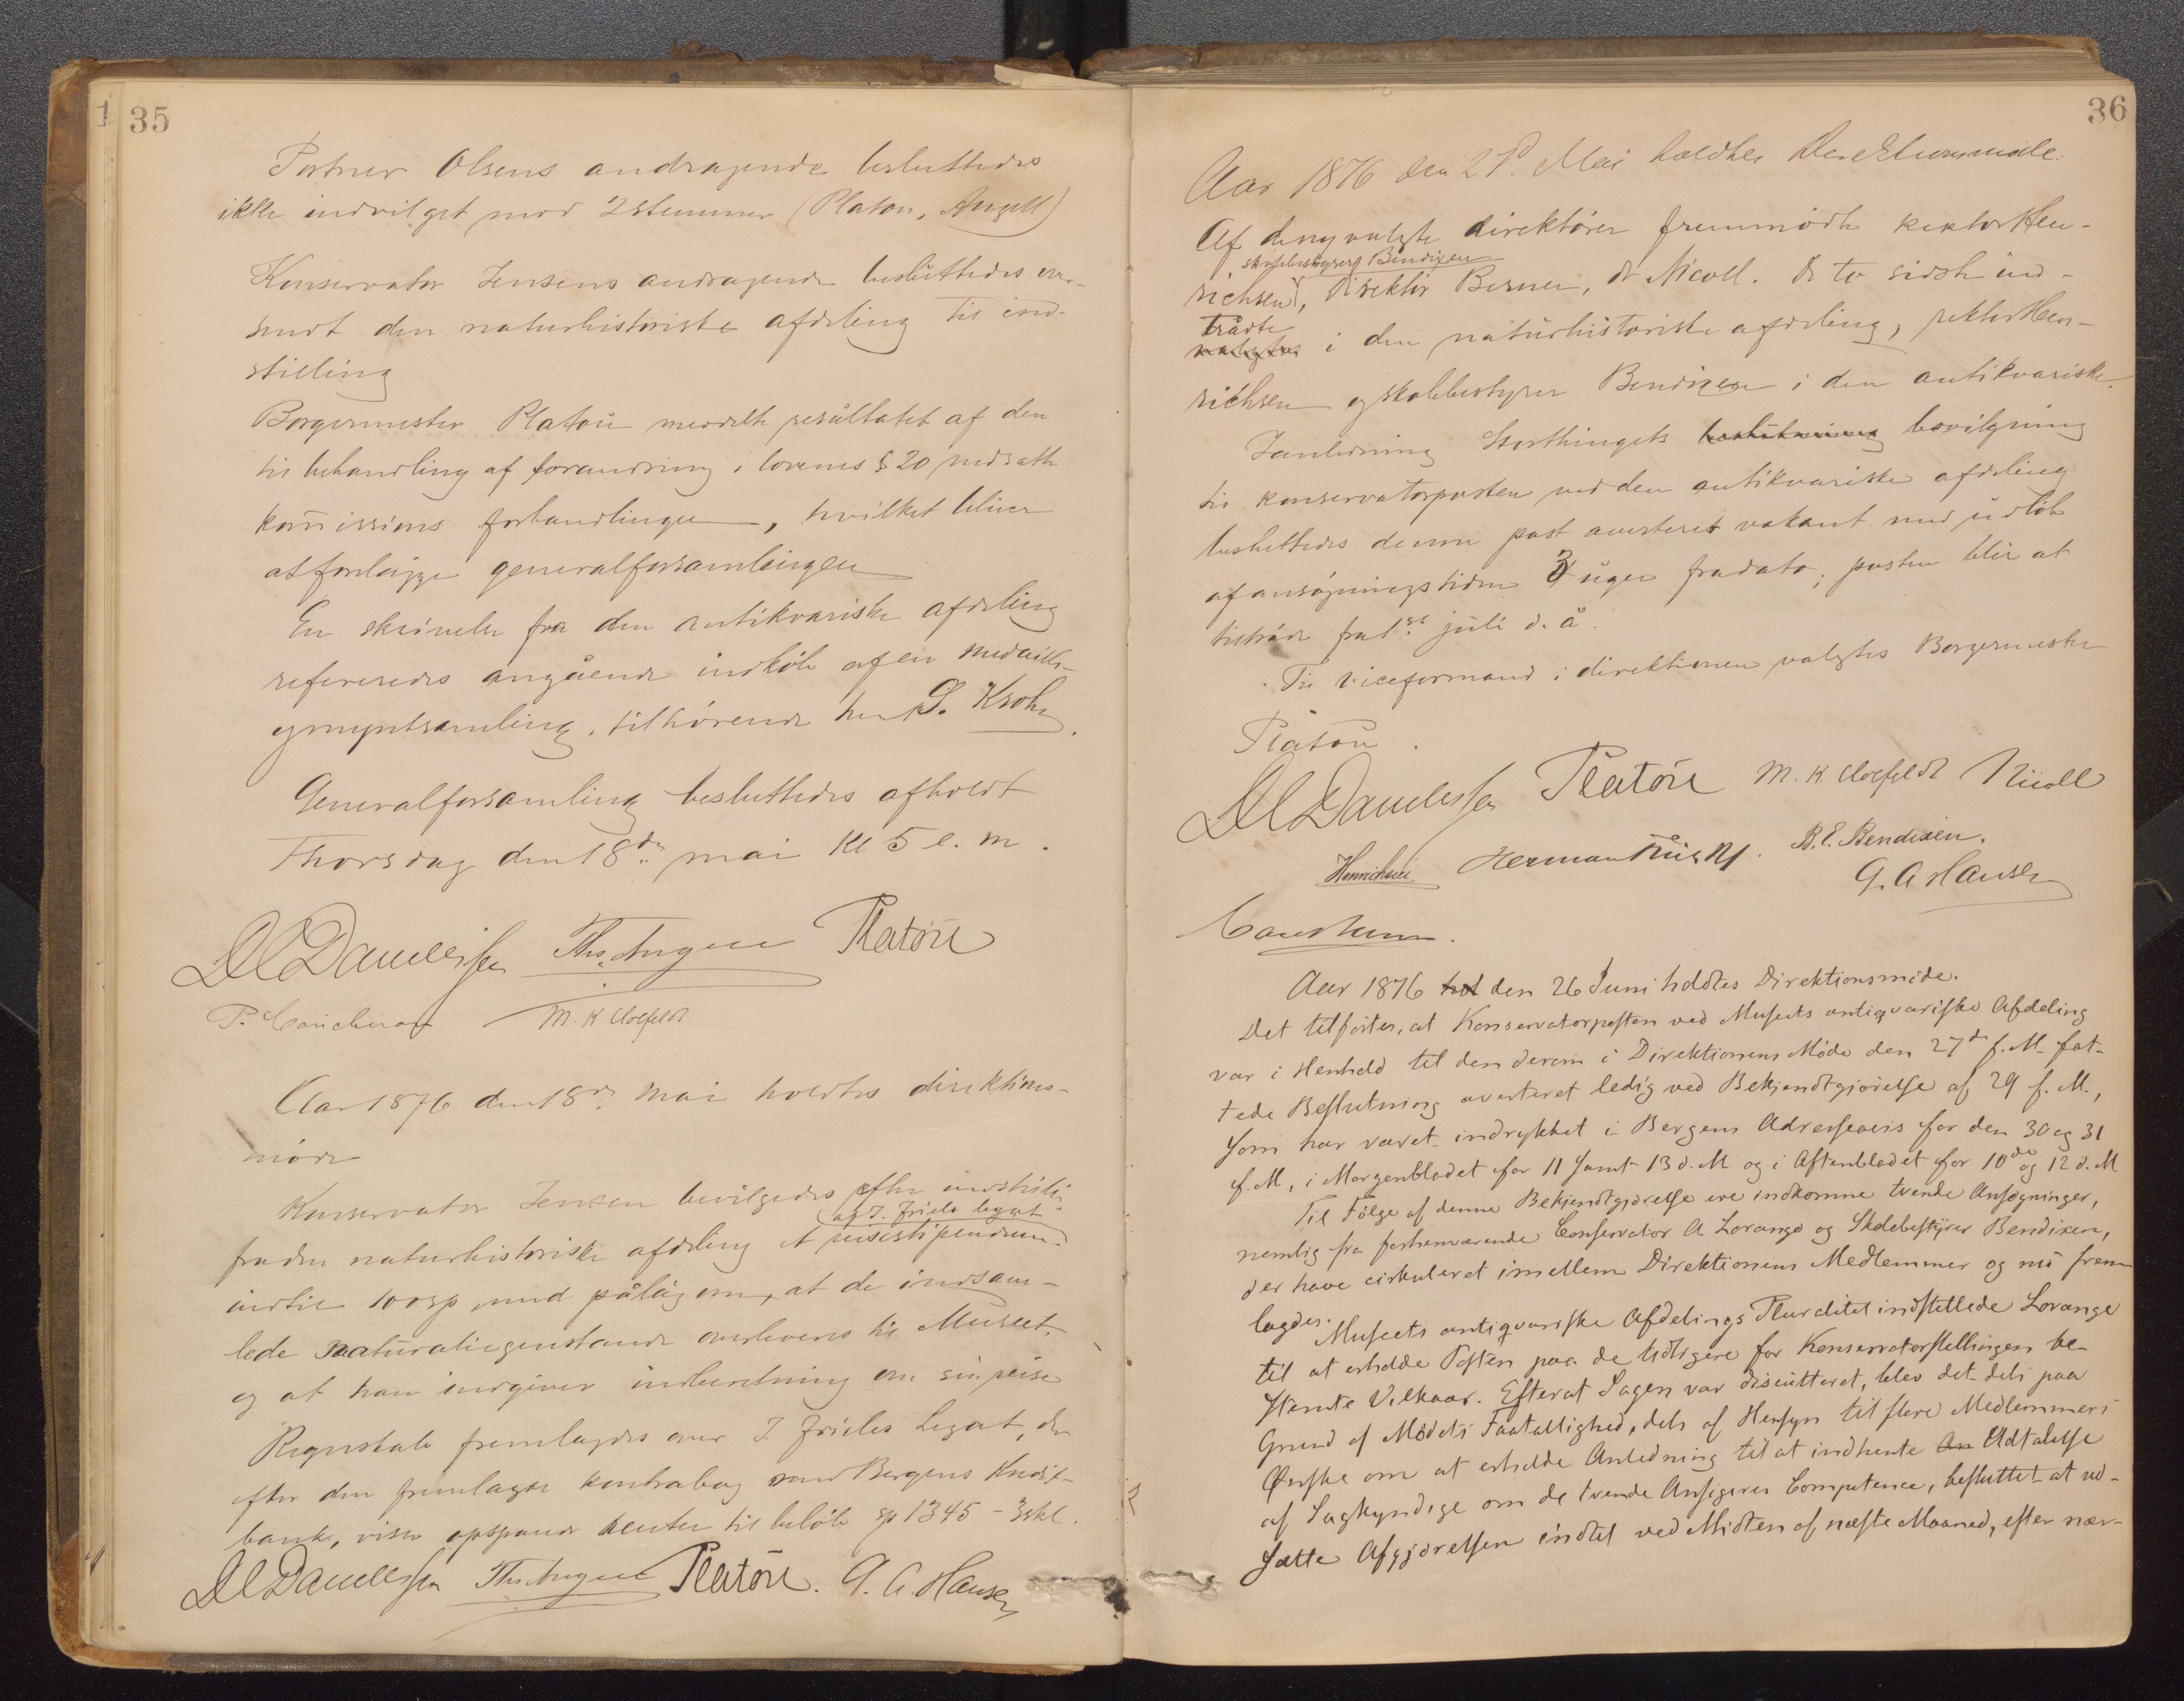 1 35
Portner Olsens andragende besluttedes
ikke indvilget mod 2 stemmer (Platou, Angell)
Konservator Jensens andragende besluttedes over-
sendt den naturhistoriske afdeling til ind-
stilling
Borgermester Platou meddelte resultatet af den
til behandling af forandring i lovenes § 20 nedsatte
kom̅issions forhandlinger, hvilket bliver
at forelægge generalforsamlingen
En skrivelse fra den antikvariske afdeling
refereredes angående indkøb af en medaille-
og myntsamling, tilhørende hr P. Krohn.
Generalforsamling besluttedes afholdt
Thorsdag den 18de mai Kl 5 e. m.
DCDanielssen Ths. Angell Platou
M. K. Ulefeldt
Aar 1876 den 18de mai holdtes direktions-
møde
Konservator Jensen bevilgedes efter indstilling
af J. Frieles legat
fra den naturhistoriske afdeling et reisestipendium
indtil 100 sp, med pålæg om, at de indsam-
lede naturaliegenstande overleveres til Museet,
og at han indgiver indberetning om sin reise
Regnskab fremlagdes over J. Frieles Legat, der
efter den fremlagte kontrabog med Bergens Kredit-
bank, viser opsparede renter til beløb sp 1345 - 3 skl.
DCDanielssen Ths Angell Platou. G. A. Hansen
36
Aar 1876 den 27. Mai holdtes Direktionsmøde.
Af de nyvalgte direktører fremmødte rektor Hen-
skolebestyrer Bendixen
richsen, Direktør Berner, dr Nicoll. De to sidste ind-
trådte
valgtes i den naturhistoriske afdeling, rektor Hen-
richsen og skolebestyrer Bendixen i den antikvariske.
I anledning Storthingets beslutning bevilgning
til konservatorposten ved den antikvariske afdeling
besluttedes denne post averteret vakant med udløb
af ansøgningstiden 3 uger fra dato; posten blir at
tiltræde fra 1st juli d. å.
Til viceformand i direktionen valgtes Borgermester
Platou.
DCDanielssen Platou M. K. Ulefeldt Nicoll
Henrichsen Herman Friele B. E. Bendixen.
G. A Hansen
Aar 1876 hol den 26 Juni holdtes Direktionsmøde.
Det tilførtes, at Konservatorposten ved Musets antiqvariske Afdeling
var i Henhold til den derom i Direktionens Møde den 27de f. M. fat-
tede Beslutning averteret ledig ved Bekjendtgjørelse af 29 f. M.,
som har været indrykket i Bergens Adresseavis for den 30 og 31
f. M, i Morgenbladet for 11 samt 13 d. M og i Aftenbladet for 10de og 12 d. M
Til Følge af denne Bekjendtgjørelse ere indkomne tvende Ansøgninger,
nemlig fra forhenværende Conservator A Lorange og Skolebestyrer Bendixen,
der have cirkuleret imellem Direktionens Medlemmer og nu frem
lagdes.
Museets antiqvariske Afdelings Pluralitet indstillede Lorange
til at erholde Posten paa de tidligere for Konservatorstillingen be-
stemte Vilkaar. Efterat Sagen var discutteret, blev det dels paa
Grund af Mødets Faatallighed, dels af Hensyn til flere Medlemmers
Ønske om at erholde Anledning til at indhente An Udtalelse
af Sagkyndige om de tvende Ansøgeres Competence, besluttet at ud-
sætte Afgjørelsen indtil ved Midten af næste Maaned, efter nær-